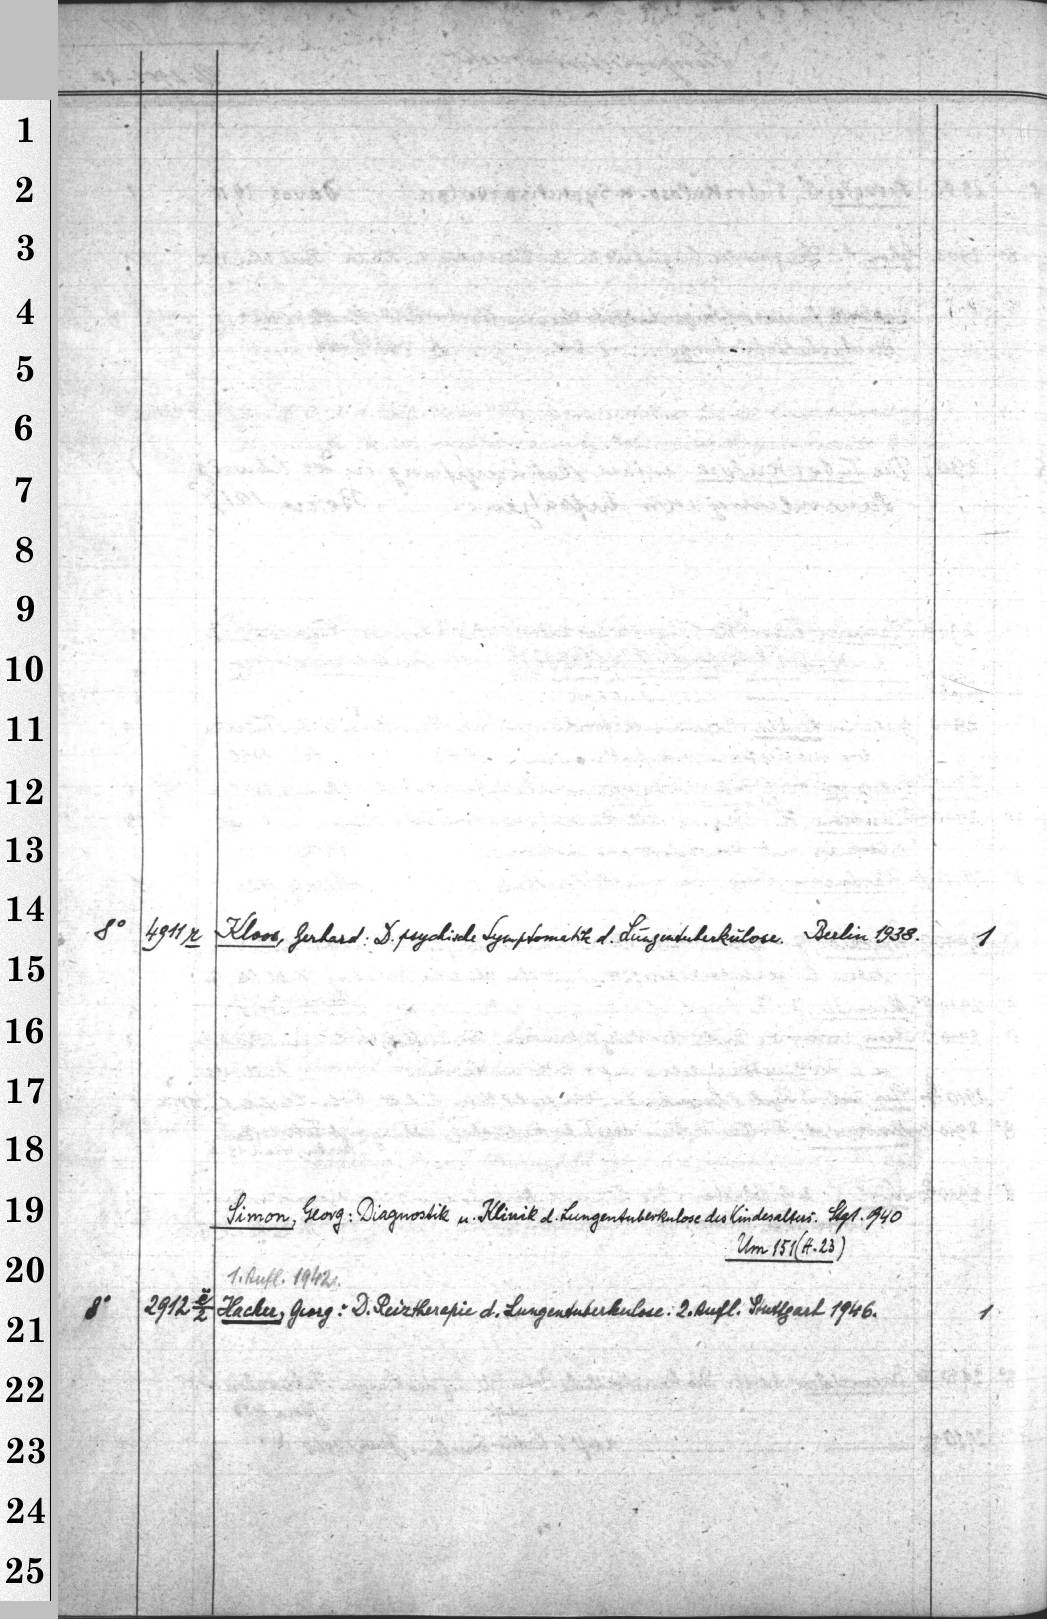 1
2
3
4
5
6
7
8
9
10
11
12
13
14
8° 4911 r Kloos, Gerhard: D. psychische Symptomatik d. Lungentuberkulose. Berlin 1938. 1
15
16
17
18
19 Simon, Georg: Diagnostik u. Klinik d. Lungentuberkulose des Kindesalters. Stgt. 940
Um 151 (H. 23)
20
1. Aufl. 1942.
8° 2912 ü/2 Hacker, Georg: D. Reiztherapie d. Lungentuberkulose. 2. Aufl. Stuttgart 1946. 1
21
22
23
24
25